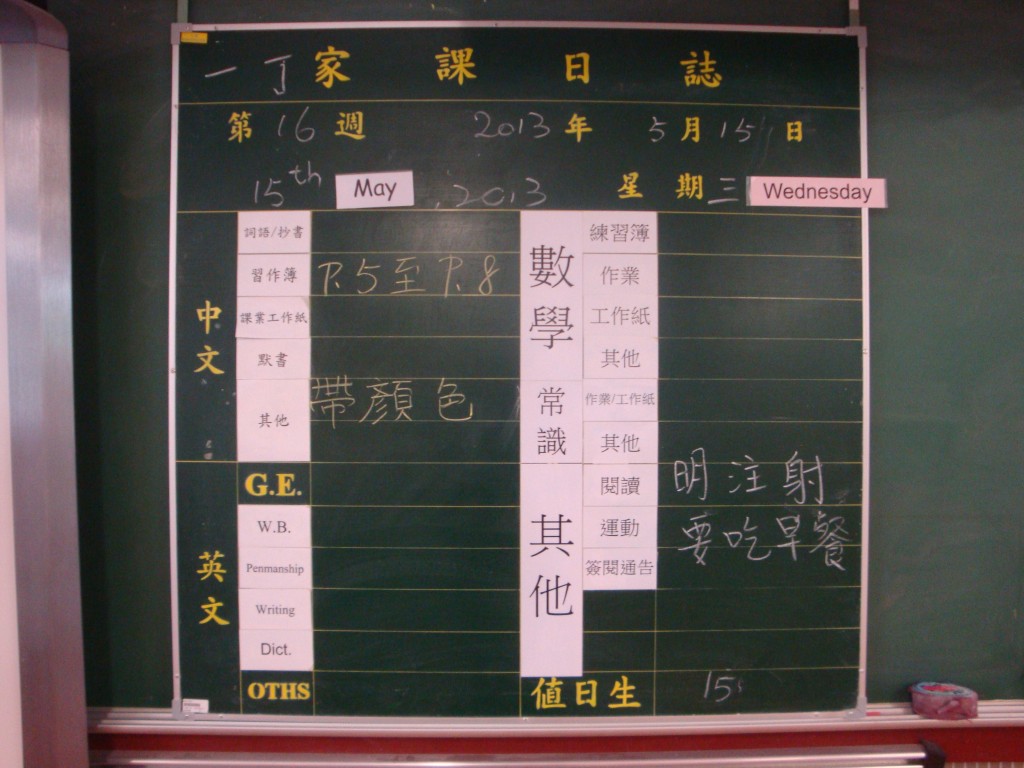 一丁家課日誌
第16週 2013年 5月15日
15th May, 2013 星期三 Wednesday
中文
詞語/抄書
習作簿 P.5至P.8
課業工作紙
默書
其他 帶顏色
英文
G.E.
W.B.
Penmanship
Writing
Dict.
OTHS
數學
練習簿
作業
工作紙
其他
常識
作業/工作紙
其他
其他
閱讀 明注射
運動 要吃早餐
簽閱通告
值日生 15